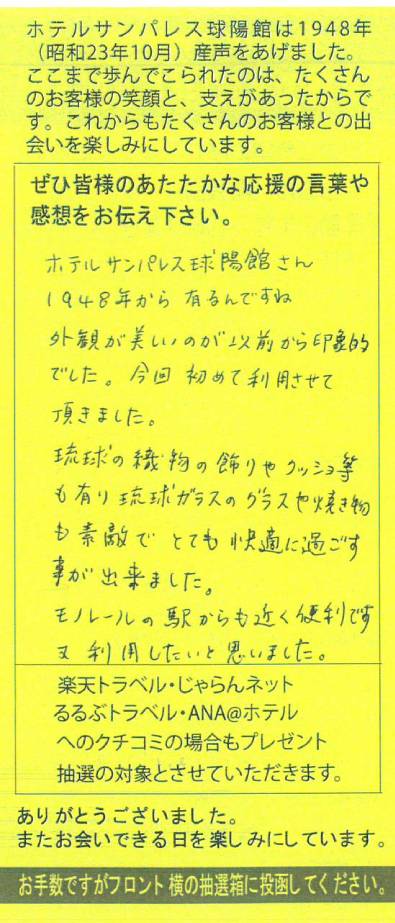 ホテルサンパレス球陽館は1948年
（昭和23年10月）産声をあげました。
ここまで歩んでこられたのは、たくさん
のお客様の笑顔と、支えがあったからで
す。これからもたくさんのお客様との出
会いを楽しみにしています。
ぜひ皆様のあたたかな応援の言葉や
感想をお伝え下さい。
ホテルサンパレス球陽館さん
1948年から有るんですね
外観が美しいのが以前から印象的
でした。今回初めて利用させて
頂きました。
琉球の織物の飾りやクッション等
も有り琉球ガラスのグラスや焼き物
も素敵でとても快適に過ごす
事が出来ました。
モノレールの駅からも近く便利です
又利用したいと思いました。
楽天トラベル・じゃらんネット
るるぶトラベル・ANA@ホテル
へのクチコミの場合もプレゼント
抽選の対象とさせていただきます。
ありがとうございました。
またお会いできる日を楽しみにしています。
お手数ですがフロント横の抽選箱に投函してください。